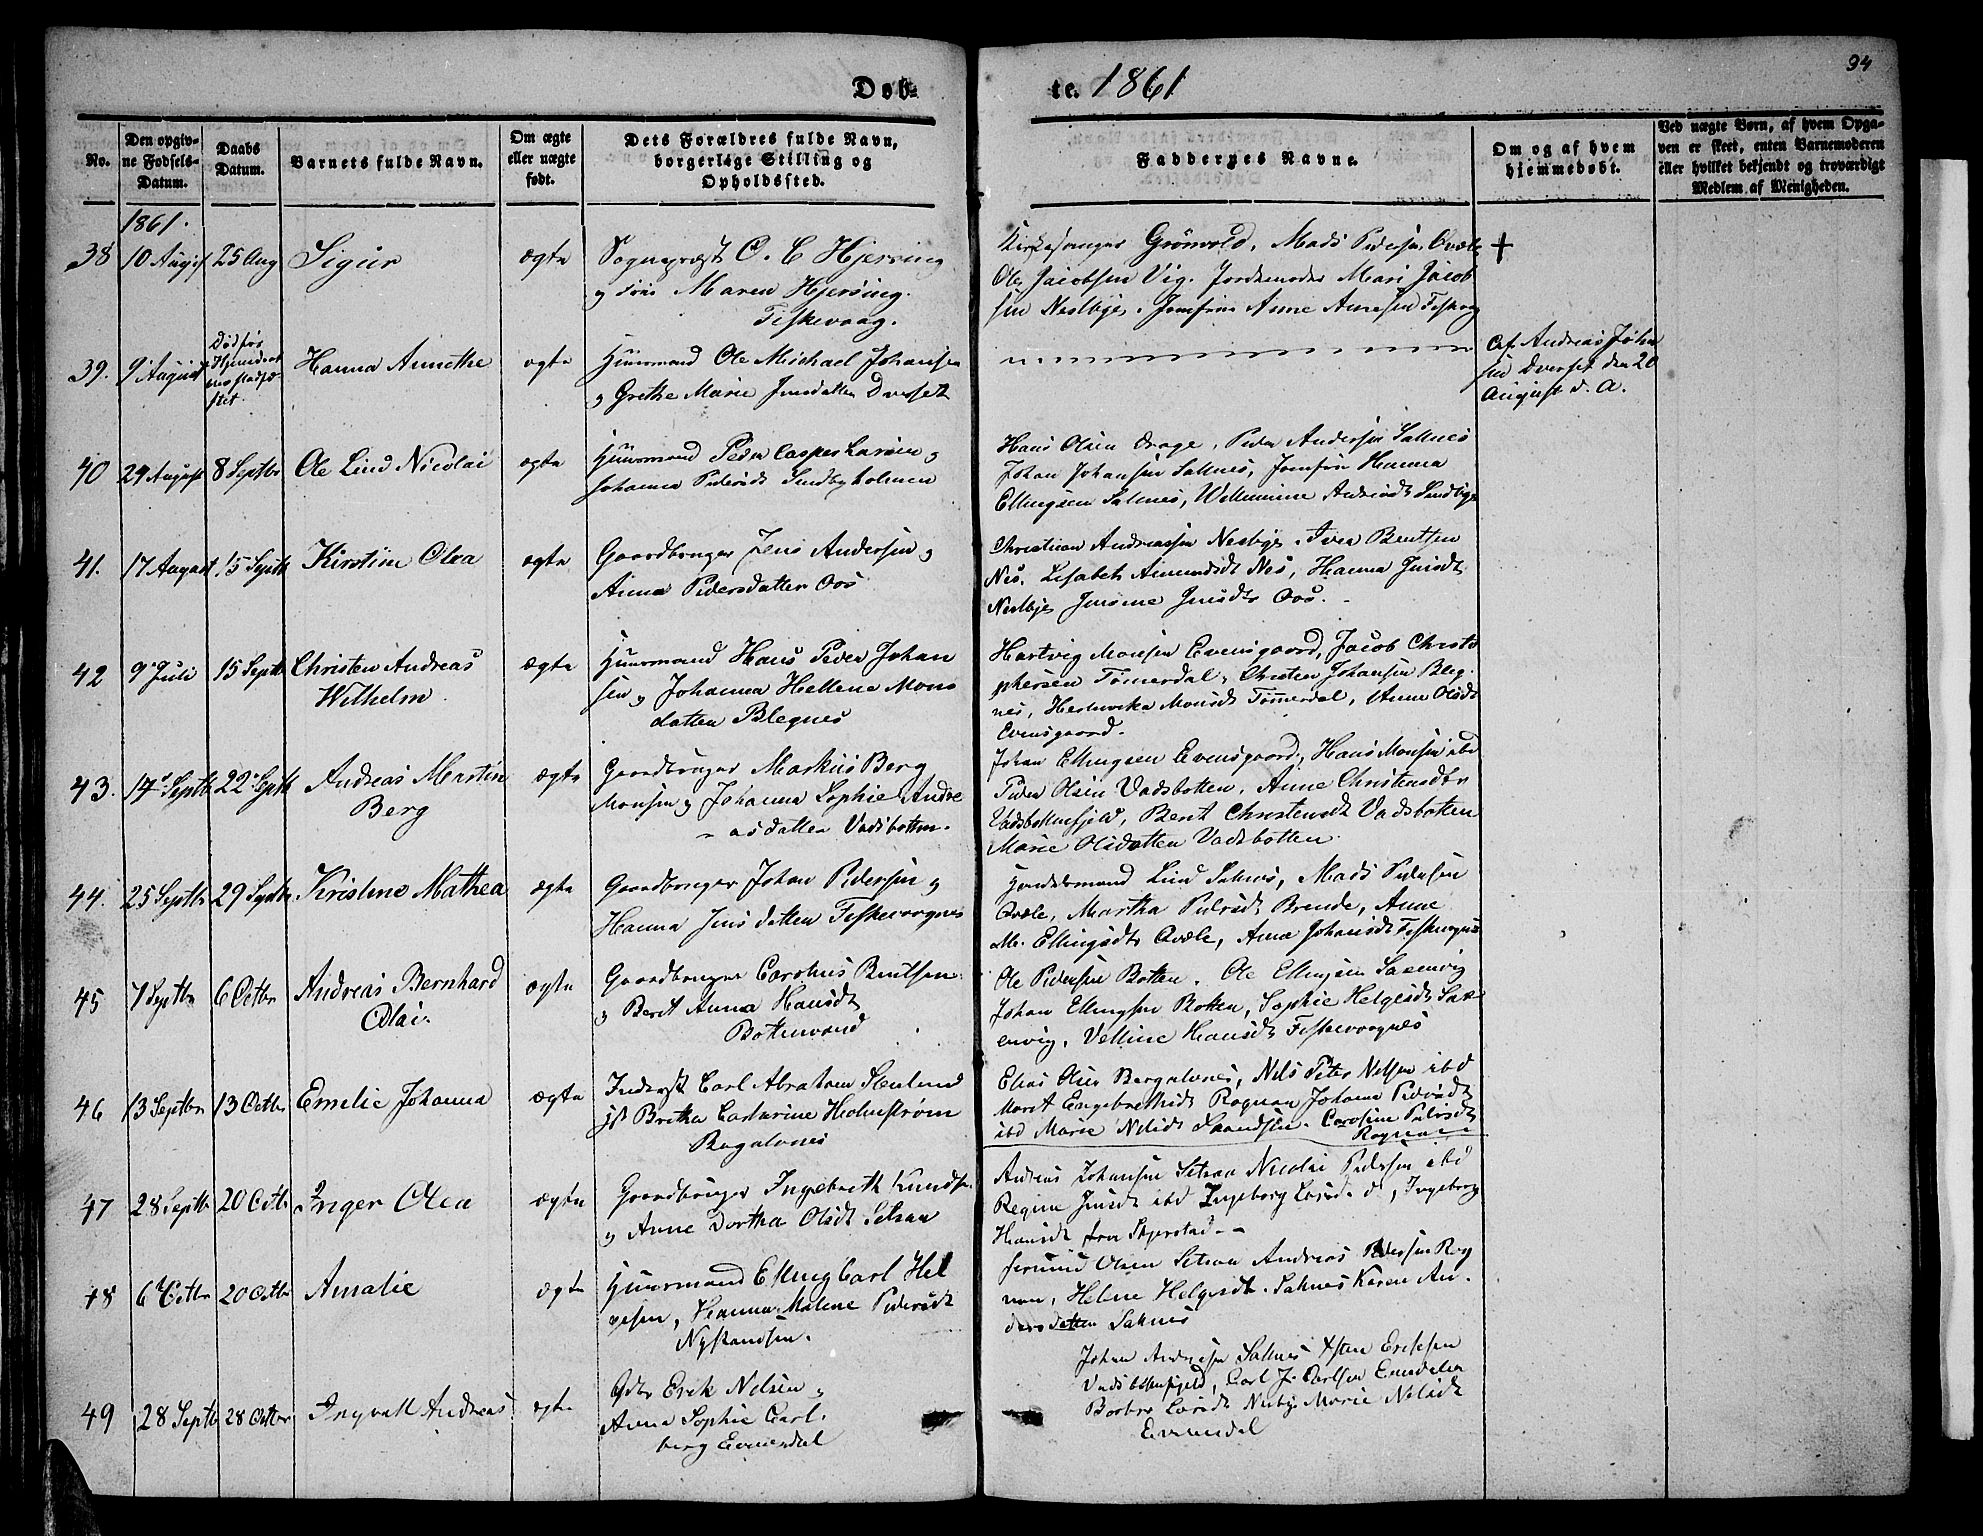 Døb-
te. 1861
94
No.
Den opgiv-
ne Fødsels-
Datum.
Daabs
Datum.
Barnets fulde Navn.
Om ægte
eller uægte
født.
Dets Forældres fulde Navn,
borgerlige Stilling og
Opholdssted.
Faddernes Navne.
Om og af hvem
hjemmedøbt.
Ved uægte Børn, af hvem Opga-
ven er skeet, enten Barnemoderen
eller hvilket bekjendt og troværdigt
Medlem af Menigheden.
1861.
38 10 August 25 Aug Sigur ægte Sognepræst O. C Hjersing
Maren Hjersing.
Fiskevaag.
Kirkesanger Grönvold, Mads Pedersen Qvæle
Ole Jacobsen Vig. Jordemoder Mari Jacob
sen Nestbye. Jomfru Anne Arnesen
39. 9 August Hanna Annethe ægte Huusmand Ole Michael Johansen
og Grethe Marie Jensdatter Dverset
Af Andreas Johan
sen Dverset den 20
August d. A.
40 24 August 8 Septbr Ole Lind Nicolai ægte Huusmand Peder Casper Larsen og
Johanna Pedersdt
Hans Olsen Drage, Peder Andersen Saltnes
Johan Johansen Saltnes, Jomfru Hanna
Ellingsen Saltnes,
41. 17 August 15 Septb Kirstine Olea ægte Gaardbruger Jens Andersen og
Anna Pedersdatter Oos
Christian Andreassen Nestbye. Iver Bentsen
Nes. Lisabeth Amundsdt Nes, Hanna Jensdt
Nestbye Oos.
42 9 Juli 15 Septb Christen Andreas
Wilhelm ægte Huusmand Hans Peder Johan
sen og Johanna Hellene Mons
datter Blegnes
Hartvig Monsen Evensgaard, Jacob Christo
phersen Tømerdal, Christen Johansen Bleg
nes, Monsdt Tømerdal, Anne Olsdt
Evensgaard.
43. 17 Septb 22 Septb Andreas Martin
Berg ægte Gaardbruger Markus Berg
Monsen og Johanna Sophie Andre
asdatter Vadsbotten.
Johan Ellingsen Evensgaard, Hans Monsen ibd
Peder Olsen Vadsbotten, Anne Christensdtr
Vadsbottenfjeld, Beret Christensdt Vadsbotten
Marie Olsdatter Vadsbotten.
44. 25 Septbr 29 Septb Kristine Mathea ægte Gaardbruger Johan Pedersen og
Hanna Jensdatter Fiskevaagnes
Handelsmand Lind Saltnes, Mads Pedersen
Qvæle, Martha Pedersdt Brende, Anne
M. Ellingsdtr Qvæle, Anne Johansdt Fiskevagnes
45 7 Septbr 6 Octbr Andreas Bernhard
Olai. ægte Gaardbruger Carolius Bentsen
og Beret Anna Hansdt
Bottenvand
Ole Pedersen Botten. Ole Ellingsen Saxenvig
Johan Ellingsen Botten, Sophie Helgesdt Sax
envig, Velline Hansdt Fiskevaagnes
46 13 Septbr 13 Octbr Emelie Johanna ægte Inderst Carl Abraham
Britha Catharine Holmstrøm
Elias Olsen Bergalvnes, Nils Peter Nilsen ibd
Maret Engebrethsdt Rognan Johanna Pedersdt
ibd Marie Nilsdt Carolina Pedersdt
Rognan
47 28 Septb 20 Octbr Inger Olea ægte Gaardbruger Ingebreth Knudsen
og Anne Dorthea Olsdt Setsaa
Andreas Johansen Setsaa Nicolai Pedersen ibd
Regine Jensdt ibd Ingeborg Larsdt do, Ingeborg
Hansdt fra Skjerstad.
48 6 Octbr 20 Octbr Amalie ægte Huusmand Elling Carl Hel
gesen, Hanna Malene Pedersdt
Nystandsen.
Olsen Setsaa Andreas Pedersen Rog
nan, Helene Helgesdt. Saltnes Karen An
dersdatter Saltnes
49 28 Septb 28 Octbr Ingvall Andreas ægte Gdbr Erik Nilsen og
Anna Sophie Carl
berg Evenesdal
Johan Andersen Saltnes Ericksen
Vadsbottenfjeld, Carl J. Carlsen
Barbro Larsdt Nestby Marie Nilsdt
Evenesdal